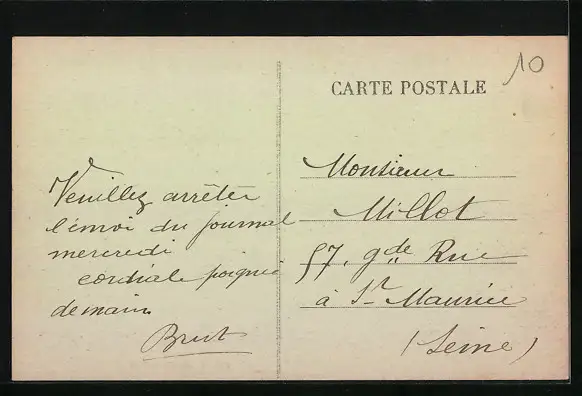 10
CARTE POSTALE
Veuillez arrêter
l'envoi du journal
mercredi
cordiale poignée
de main
Brut
Monsieur
Millot
57, gde Rue
à St Maurice
(Seine)